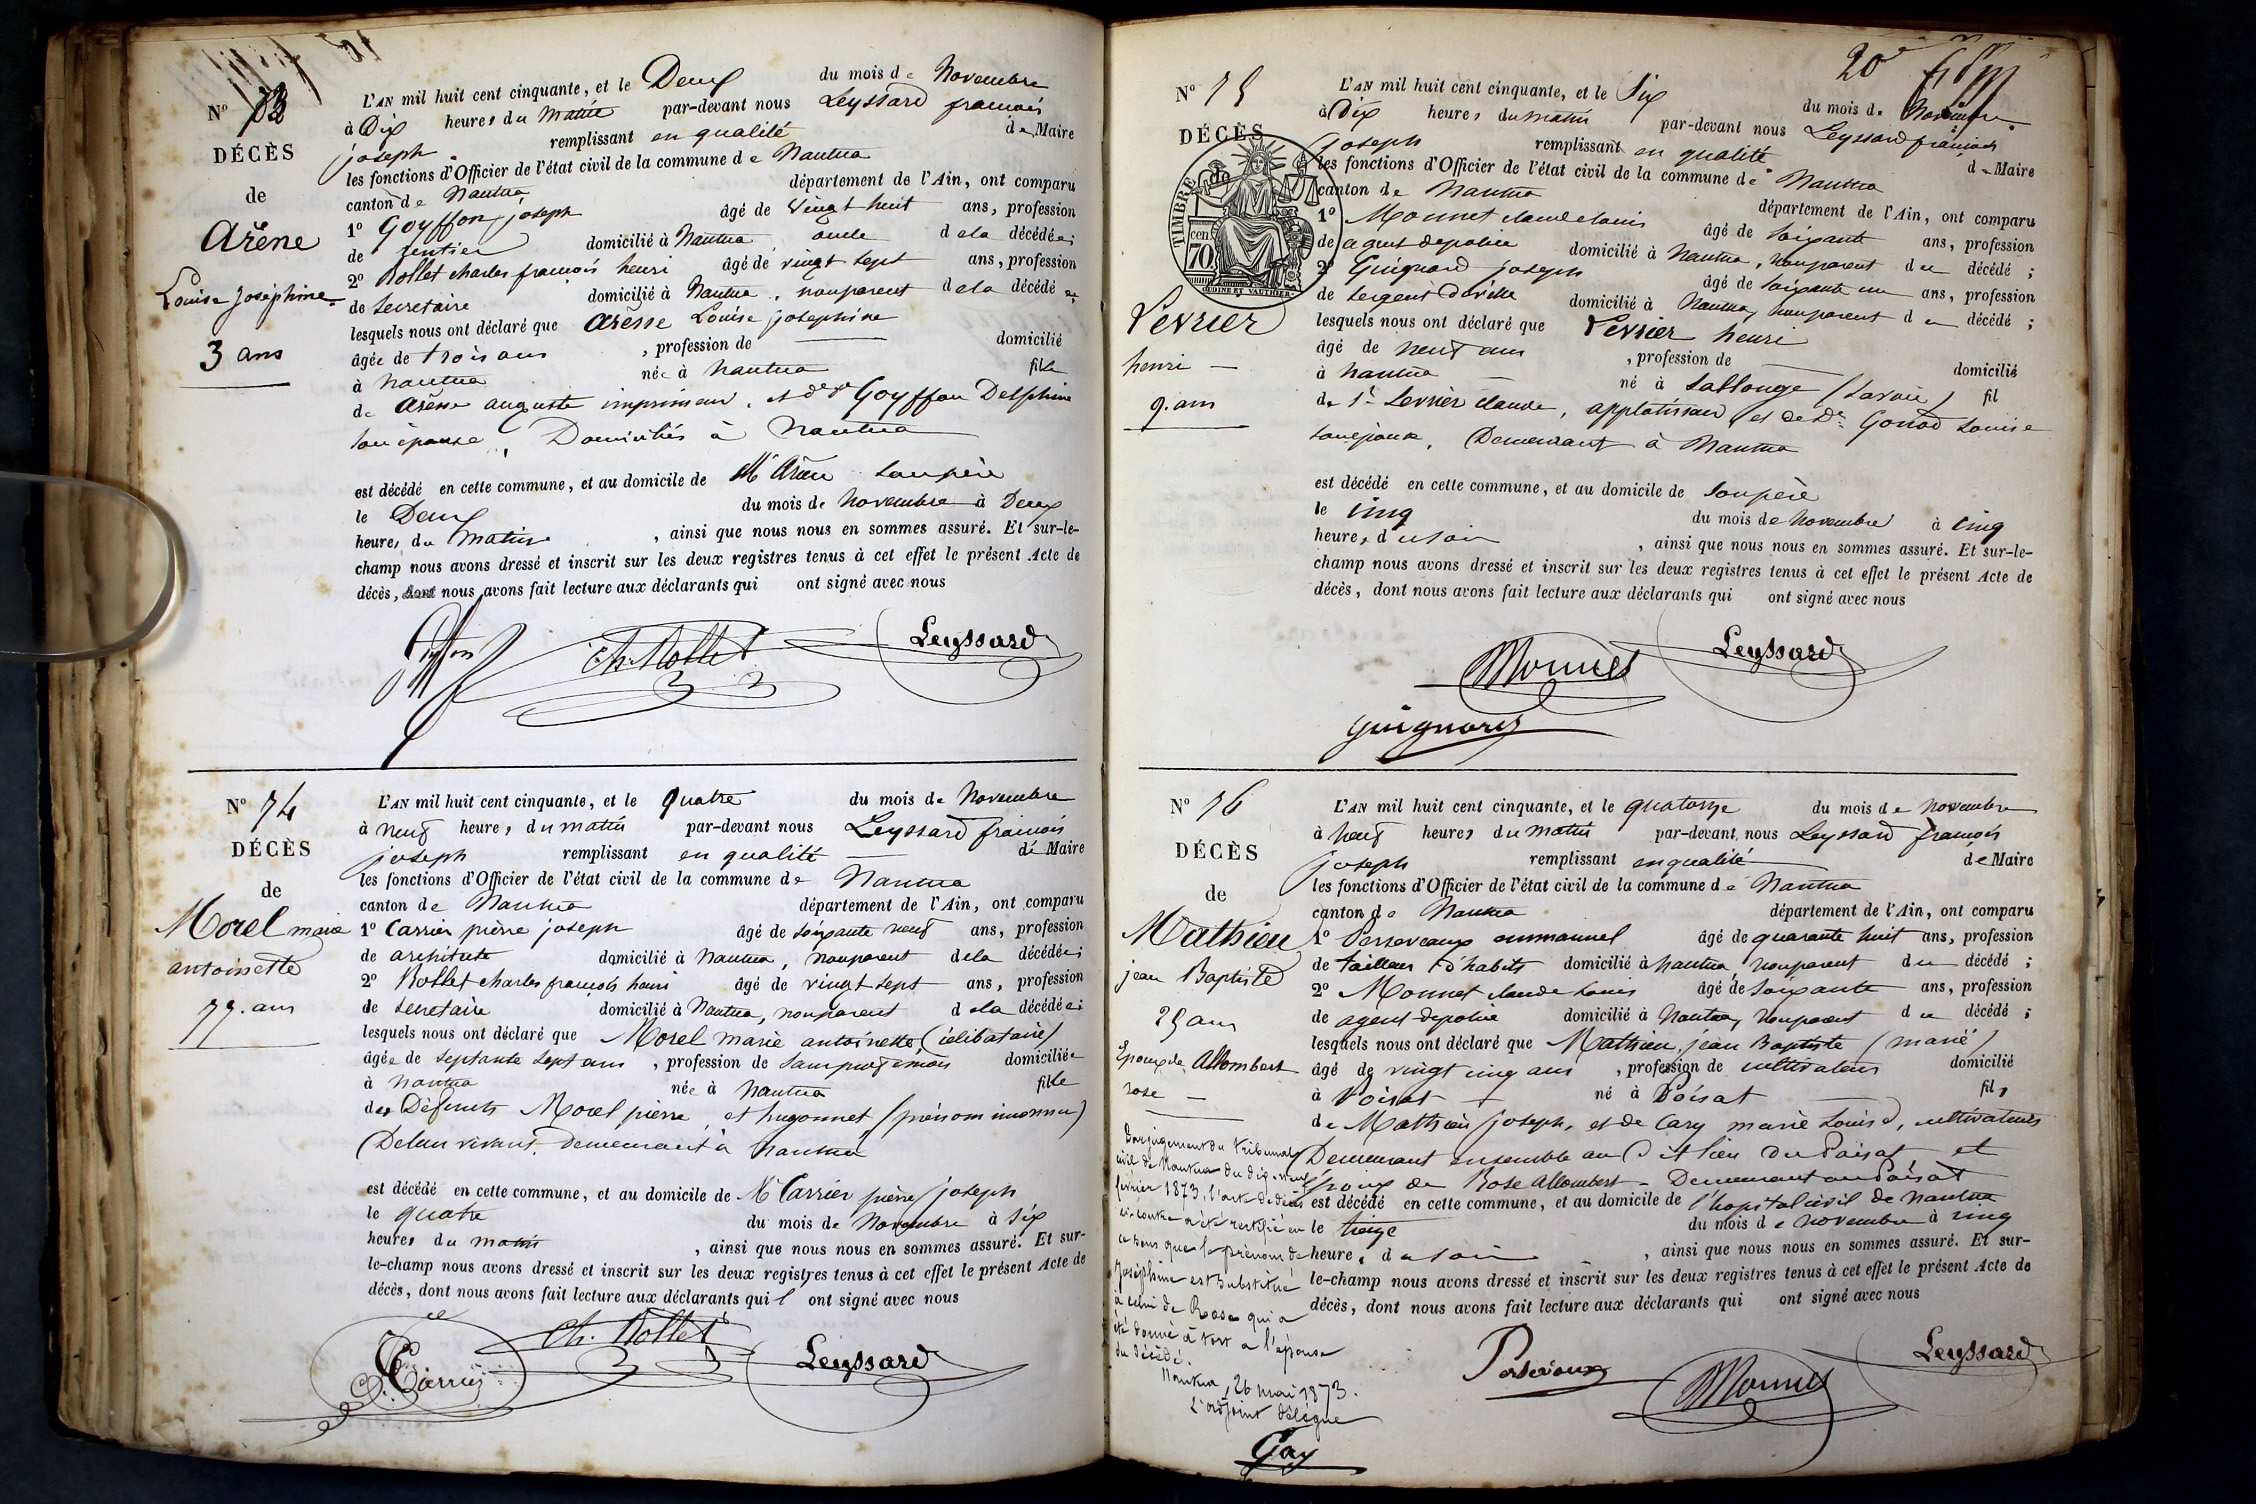 N° 73
DÉCÈS
de
Arène
Louise Joséphine
3 ans
L'AN mil huit cent cinquante, et le Deux du mois de Novembre
à Dix heures du matin par-devant nous Leyssard françois
joseph remplissant en qualité de Maire
les fonctions d'Officier de l'état civil de la commune de Nantua
canton de Nantua département de l'Ain, ont comparu
1° Goyffon joseph âgé de vingt huit ans, profession
de rentier domicilié à Nantua oncle de la décédée;
2° Rollet charles françois henri âgé de vingt sept ans, profession
de secretaire domicilié à Nantua, nonparent de la décédée
lesquels nous ont déclaré que Arène Louise josephine
âgée de trois ans, profession de domicilié
à Nantua née à Nantua fille
de Arène auguste imprimeur, et de Goyffon Delphine
son épouse, Domiciliés à Nantua
est décédé en cette commune, et au domicile de Mr Arène son père
le Deux du mois de Novembre à Deux
heures du matin, ainsi que nous nous en sommes assuré. Et sur-le-
champ nous avons dressé et inscrit sur les deux registres tenus à cet effet le présent Acte de
décès, dont nous avons fait lecture aux déclarants qui ont signé avec nous
Goyffon Ch. Rollet Leyssard
N° 74
DÉCÈS
de
Morel marie
antoinette
77. ans
L'AN mil huit cent cinquante, et le quatre du mois de Novembre
à neuf heures du matin par-devant nous Leyssard françois
joseph remplissant en qualité de Maire
les fonctions d'Officier de l'état civil de la commune de Nantua
canton de Nantua département de l'Ain, ont comparu
1° Carrier pierre joseph âgé de soixante neuf ans, profession
de architecte domicilié à Nantua, nonparent de la décédée;
2° Rollet charles françois henri âgé de vingt sept ans, profession
de secretaire domicilié à Nantua, nonparent de la décédée;
lesquels nous ont déclaré que Morel marie antoinette (célibataire)
âgée de septante sept ans, profession de sans profession domiciliée
à Nantua née à Nantua fille
des Défunts Morel pierre et hugonnet (prénom inconnu)
(De leur vivant, demeurant à Nantua
est décédé en cette commune, et au domicile de Mr Carrier pierre joseph
le quatre du mois de Novembre à Six
heures du matin, ainsi que nous nous en sommes assuré. Et sur-
le-champ nous avons dressé et inscrit sur les deux registres tenus à cet effet le présent Acte de
décès, dont nous avons fait lecture aux déclarants qui ont signé avec nous
Carrier Ch. Rollet Leyssard
20e
N° 75
DÉCÈS
de
TIMBRE
cen.
70
OUDINÉ ET VAUTHIER
Levrier
henri
9. ans
L'AN mil huit cent cinquante, et le Six du mois de Novembre
à Dix heures du matin par-devant nous Leyssard françois
joseph remplissant en qualité de Maire
les fonctions d'Officier de l'état civil de la commune de Nantua
canton de Nantua département de l'Ain, ont comparu
1° Monnet claude Louis âgé de soixante ans, profession
de agent de police domicilié à Nantua, nonparent du décédé;
2° Guignard joseph âgé de soixante un ans, profession
de sergent de ville domicilié à Nantua, nonparent du décédé;
lesquels nous ont déclaré que Levrier henri
âgé de neuf ans, profession de domicilié
à Nantua né à Sallonge (Savoie) fil
de Sr Levrier claude, et de De Gonod Louise
son épouse, Demeurant à Nantua
est décédé en cette commune, et au domicile de son père
le cinq du mois de Novembre à cinq
heures du soir, ainsi que nous nous en sommes assuré. Et sur-le-
champ nous avons dressé et inscrit sur les deux registres tenus à cet effet le présent Acte de
décès, dont nous avons fait lecture aux déclarants qui ont signé avec nous
Monnet Leyssard
Guignard
N° 76
DÉCÈS
de
Mathieu
jean Baptiste
25 ans
Epoux de Allombert
rose
L'AN mil huit cent cinquante, et le quatorze du mois de Novembre
à neuf heures du matin par-devant nous Leyssard françois
joseph remplissant en qualité de Maire
les fonctions d'Officier de l'état civil de la commune de Nantua
canton de Nantua département de l'Ain, ont comparu
1° Perseveaux emmanuel âgé de quarante huit ans, profession
de tailleur d'habits domicilié à Nantua, nonparent du décédé;
2° Monnet claude Louis âgé de soixante ans, profession
de agent de police domicilié à Nantua, nonparent du décédé;
lesquels nous ont déclaré que Mathieu, jean Baptiste (marié)
âgé de vingt cinq ans, profession de cultivateur domicilié
à Poisat né à Poisat fils
de Mathieu joseph, et de Cary marie Louise, cultivateurs
Demeurant ensemble au dit lieu du Poisat et
époux de Rose Allombert - Demeurant au Poisat
est décédé en cette commune, et au domicile de l'hopital civil de Nantua
le treize du mois de novembre à cinq
heures du soir, ainsi que nous nous en sommes assuré. Et sur-
le-champ nous avons dressé et inscrit sur les deux registres tenus à cet effet le présent Acte de
décès, dont nous avons fait lecture aux déclarants qui ont signé avec nous
Perseveaux Monnet Leyssard
Par jugement du tribunal
civil de Nantua du dix sept
février 1873, l'acte de décès
ci-contre a été rectifié en
ce sens que le prénom de
Joséphine est substitué
à celui de Rose qui a
été donné à tort a l'épouse
du décédé.
Nantua, 26 mai 1873.
L'adjoint délégué
Gay